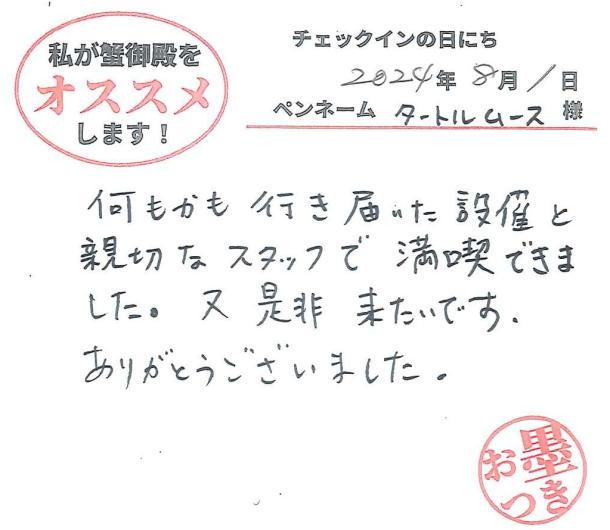 私が蟹御殿を
オススメ
します！
チェックインの日にち
2024年 8月 1日
ペンネーム タートルムース 様
何もかも 行き届いた 設催と
親切な スタッフで 満喫できま
した。又 是非 来たいです.
ありがとうございました。
お墨
つき